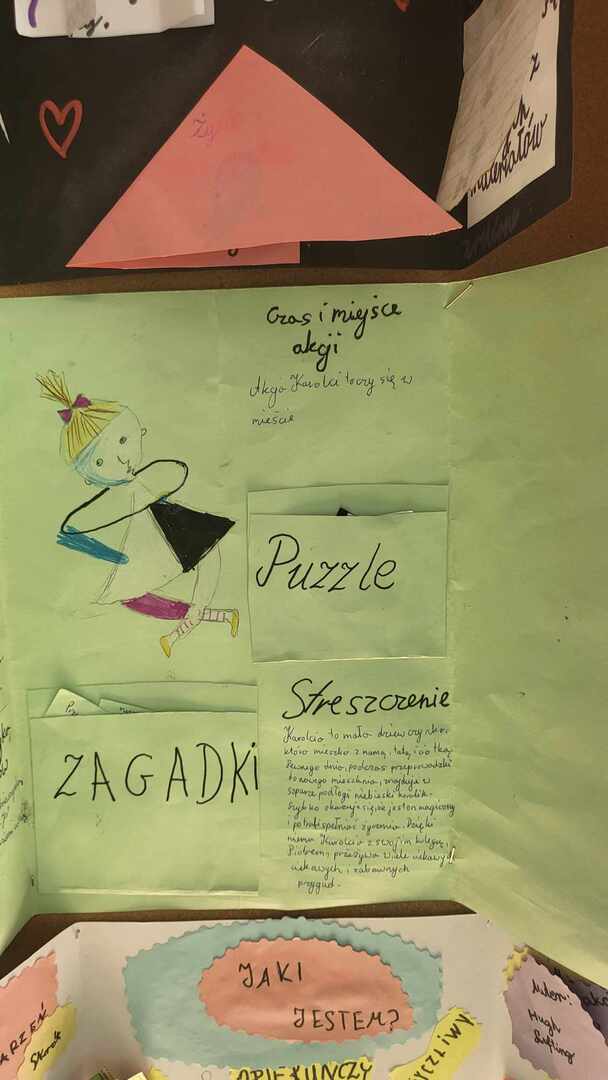 z
materiałów
Czas i miejsce
akcji
Akcja Karolci toczy się w
mieście
Puzzle
ZAGADKI
Streszczenie
Karolcia to mała dziewczynka,
która mieszka z mamą, tatą i ciotką.
Pewnego dnia, podczas przeprowadzki
do nowego mieszkania, znajduje w
szparze podłogi niebieski koralik.
Szybko okazuje się, że jest on magiczny
i potrafi spełniać życzenia. Dzięki
niemu Karolcia z swoim kolegą,
Piotrem, przeżywa wiele ciekawych
ciekawych i zabawnych
przygód.
JAKI
JESTEM?
OPIEKUŃCZY
Skrót
Hugh
Lofting